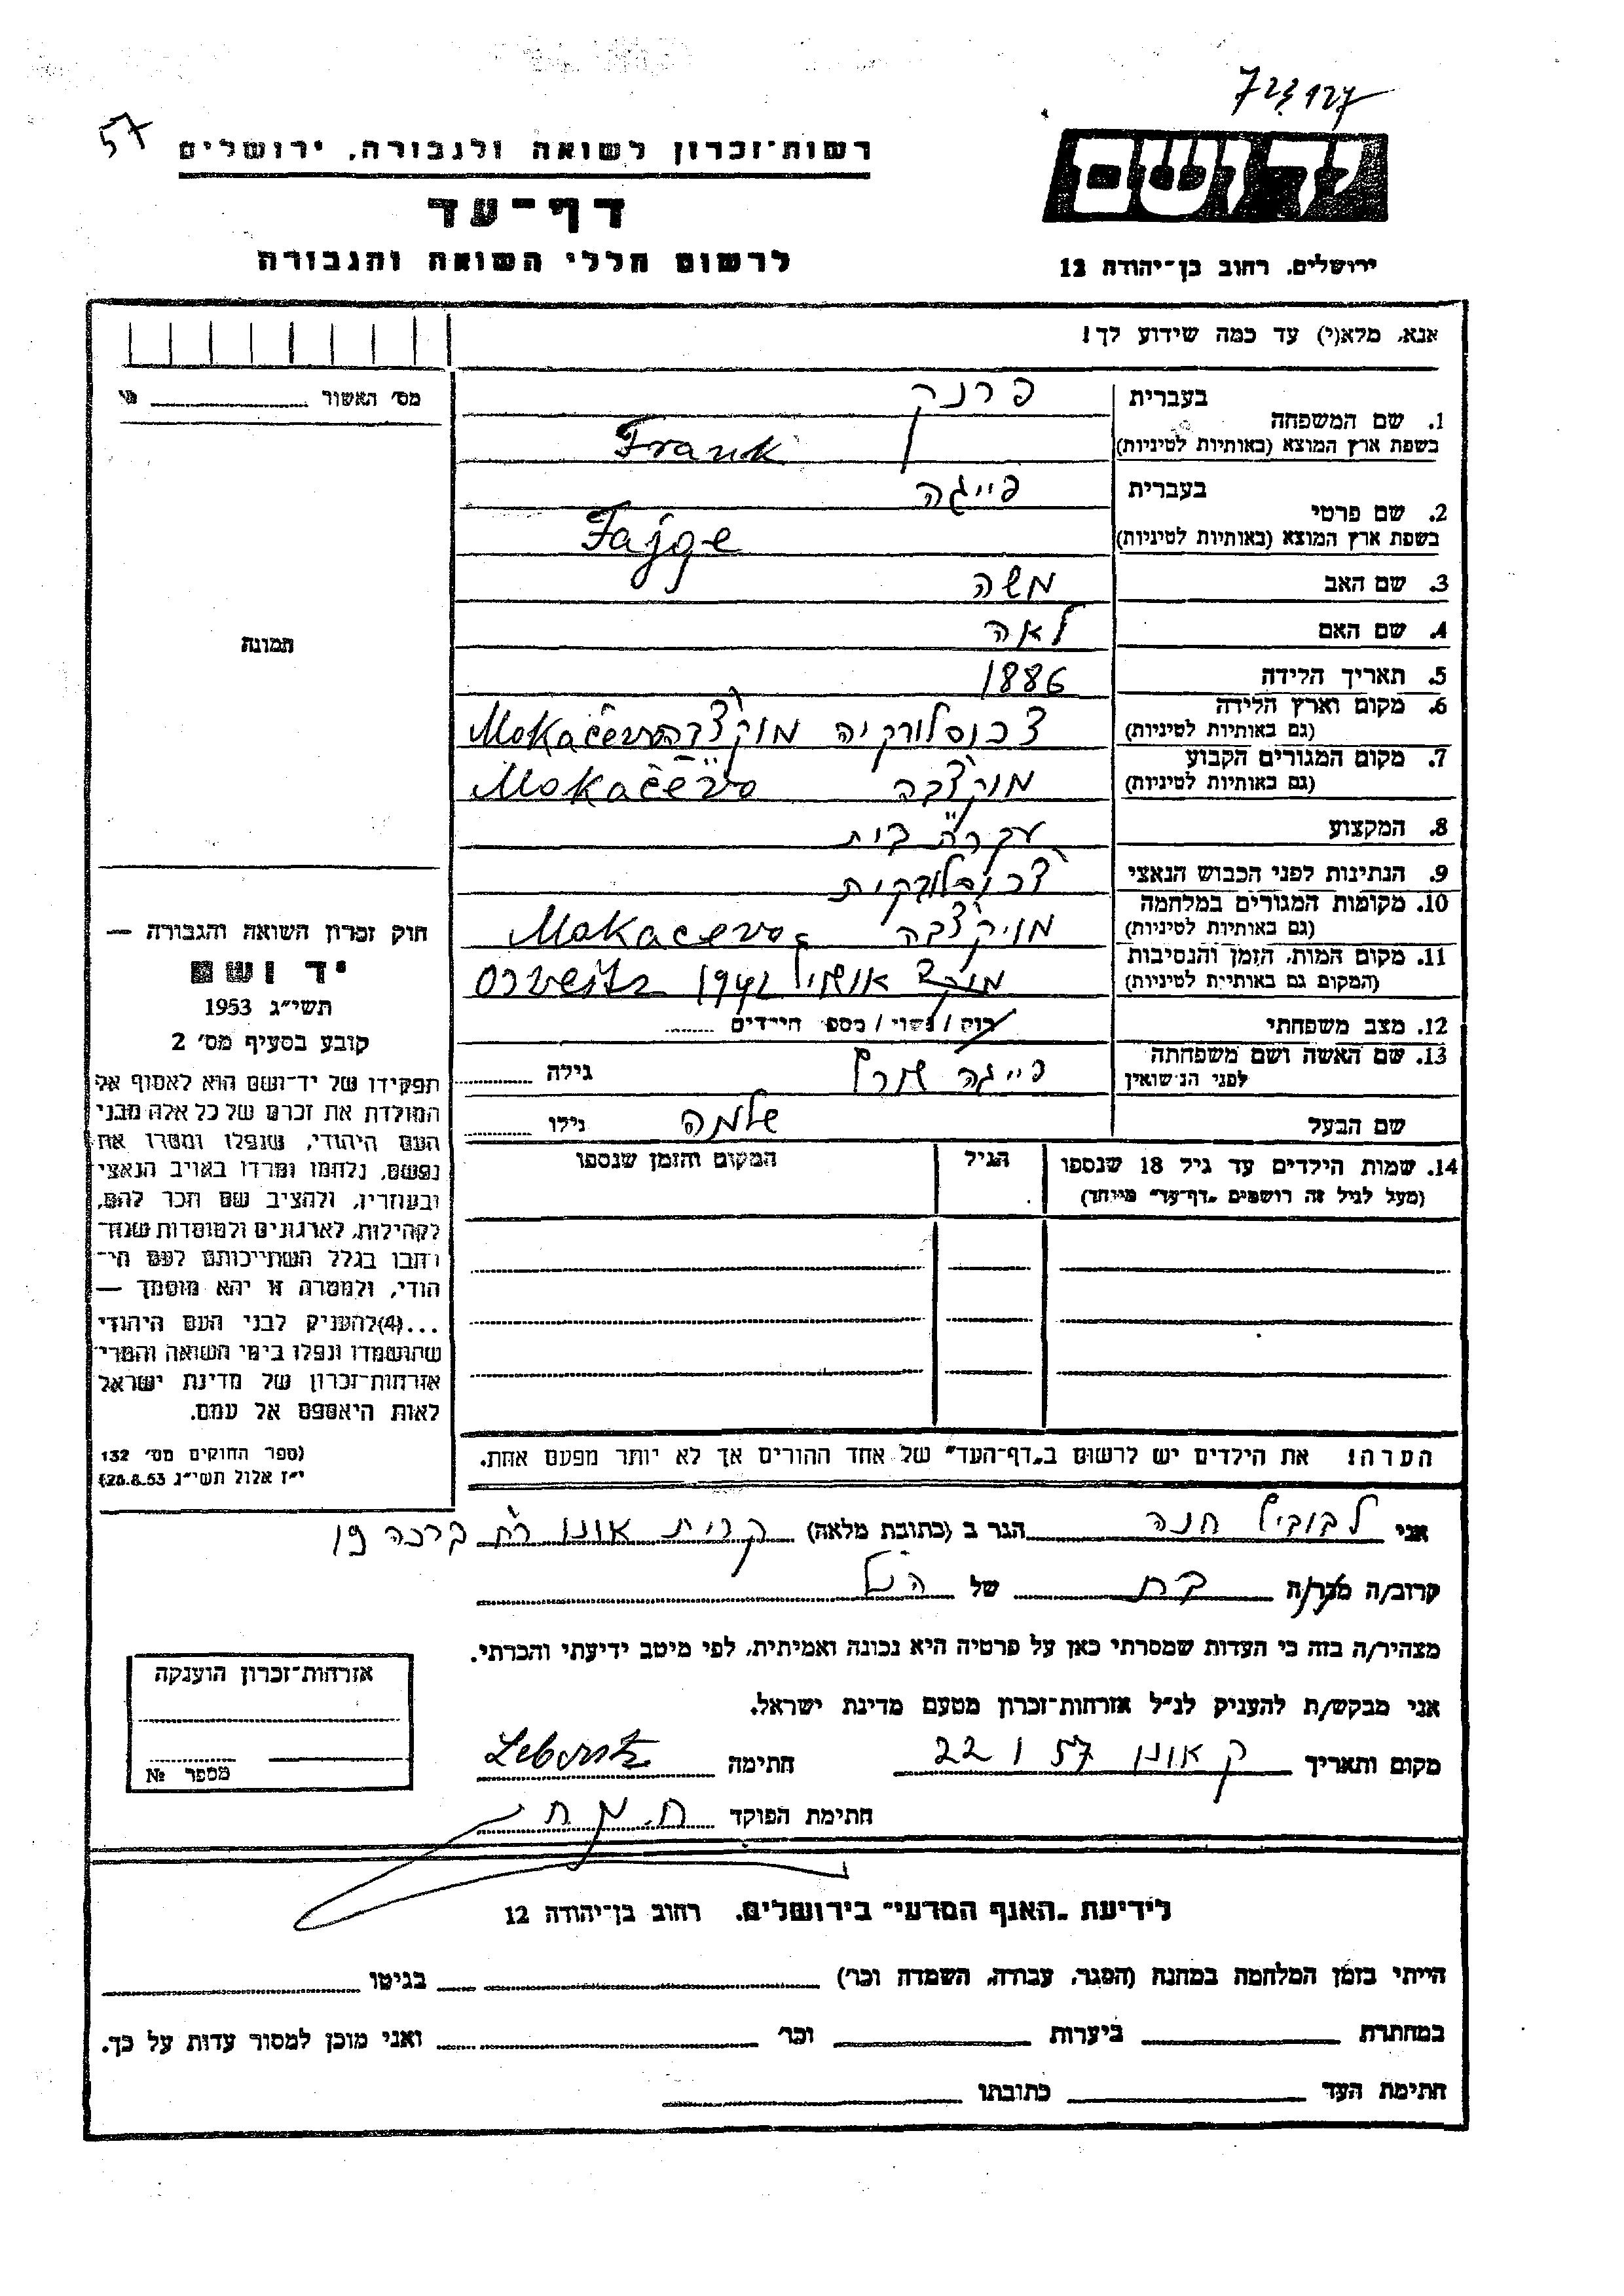 723127
57
יד ושם
רשות-זכרון לשואה ולגבורה, ירושלים
דף-עד
לרשום חללי השואה והגבורה
ירושלים, רחוב בן-יהודה 12
אנא, מלא(י) עד כמה שידוע לך!
מס' האשור
1. שם המשפחה בעברית פרנק
בשפת ארץ המוצא (באותיות לטיניות) Frank
2. שם פרטי בעברית פייגה
בשפת ארץ המוצא (באותיות לטיניות) Fajge
3. שם האב משה
4. שם האם לאה
5. תאריך הלידה 1886
6. מקום וארץ הלידה
(גם באותיות לטיניות) Mokačevo
7. מקום המגורים הקבוע
(גם באותיות לטיניות) מוקצבה Mokačevo
8. המקצוע עקרת בית
9. הנתינות לפני הכבוש הנאצי
10. מקומות המגורים במלחמה
(גם באותיות לטיניות) Mokacevo
11. מקום המות, הזמן והנסיבות
(המקום גם באותיות לטיניות)
12. מצב משפחתי רווק / נשוי / מספר הילדים
13. שם האשה ושם משפחתה
לפני הנישואין פייגה גילה
שם הבעל שלמה גילו
14. שמות הילדים עד גיל 18 שנספו הגיל המקום והזמן שנספו
(מעל לגיל זה רושמים "דף-עד" מיוחד)
הערה! את הילדים יש לרשום ב"דף-העד" של אחד ההורים אך לא יותר מפעם אחת.
תמונה
חוק זכרון השואה והגבורה —
יד ושם
תשי"ג 1953
קובע בסעיף מס' 2
תפקידו של יד-ושם הוא לאסוף אל
המולדת את זכרם של כל אלה מבני
העם היהודי, שנפלו ומסרו את
נפשם, נלחמו ומרדו באויב הנאצי
ובעוזריו, ולהציב שם וזכר להם,
לקהילות, לארגונים ולמוסדות שנח-
רבו בגלל השתייכותם לעם הי-
הודי, ולמטרה זו יהא מוסמך —
...(4)להעניק לבני העם היהודי
שהושמדו ונפלו בימי השואה והמרי-
אזרחות-זכרון של מדינת ישראל
לאות היאספם אל עמם.
(ספר החוקים מס' 132
י"ז אלול תשי"ג 28.8.53)
אני חנה הגר ב (כתובת מלאה) קרית אונו רח' ברכה 19
קרוב/ה מכר/ה בת של הנ"ל
מצהיר/ה בזה כי העדות שמסרתי כאן על פרטיה היא נכונה ואמיתית, לפי מיטב ידיעתי והכרתי.
אני מבקש/ת להעניק לנ"ל אזרחות-זכרון מטעם מדינת ישראל.
מקום ותאריך ק אונו 22 1 57 חתימה
חתימת הפוקד
אזרחות-זכרון הוענקה
מספר №
לידיעת "האגף המדעי" בירושלים, רחוב בן-יהודה 12
הייתי בזמן המלחמה במחנה (הסגר, עבודה, השמדה וכו') בגיטו
במחתרת ביערות וכו' ואני מוכן למסור עדות על כך.
חתימת העד כתובתו